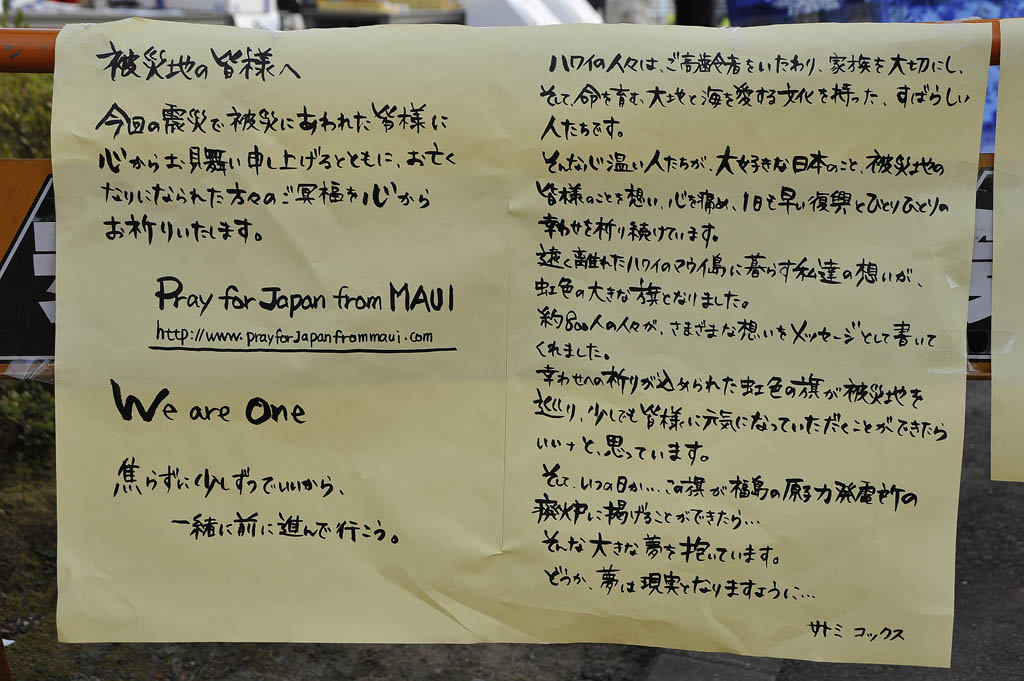 被災地の皆様へ
今回の震災で被災にあわれた皆様に
心からお見舞い申し上げるとともに、お亡く
なりになられた方々のご冥福を心から
お祈りいたします。
Pray for Japan from MAUI
http://www.prayforJapanfrommaui.com
We are One
焦らずに少しずつでいいから、
一緒に前に進んで行こう。
ハワイの人々は、ご高齢者をいたわり、家族を大切にし、
そして、命を育む、大地と海を愛する文化を持った、すばらしい
人たちです。
そんな心温い人たちが、大好きな日本のこと、被災地の
皆様のことを想い、心を痛め、1日も早い復興とひとりひとりの
幸わせを祈り続けています。
遠く離れたハワイのマウイ島に暮らす私達の想いが、
虹色の大きな旗となりました。
約800人の人々が、さまざまな想いをメッセージとして書いて
くれました。
幸わせへの祈りが込められた虹色の旗が被災地を
巡り、少しでも皆様に元気になっていただくことができたら
いいなと、思っています。
そして、いつの日か…この旗が福島の原子力発電所の
廃炉に掲げることができたら…
そんな大きな夢を抱いています。
どうか、夢は現実となりますように…
サトミ コックス